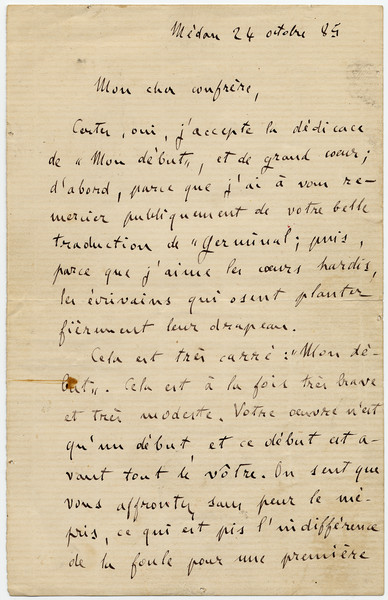 Médan 24 octobre 85
Mon cher confrère,
Certes, oui, j'accepte la dédicace
de « Mon début », et de grand cœur;
d'abord, parce que j'ai à vous re-
mercier publiquement de votre belle
traduction de « Germinal; puis,
parce que j'aime les cœurs hardis,
les écrivains qui osent planter
fièrement leur drapeau.
Cela est très carré : « Mon dé-
but ». Cela est à la fois très brave
et très modeste. Votre œuvre n'est
qu'un début, et ce début est a-
vant tout le vôtre. On sent que
vous affrontez sans peur le mé-
pris, ce qui est pis l'indifférence
de la foule pour une première